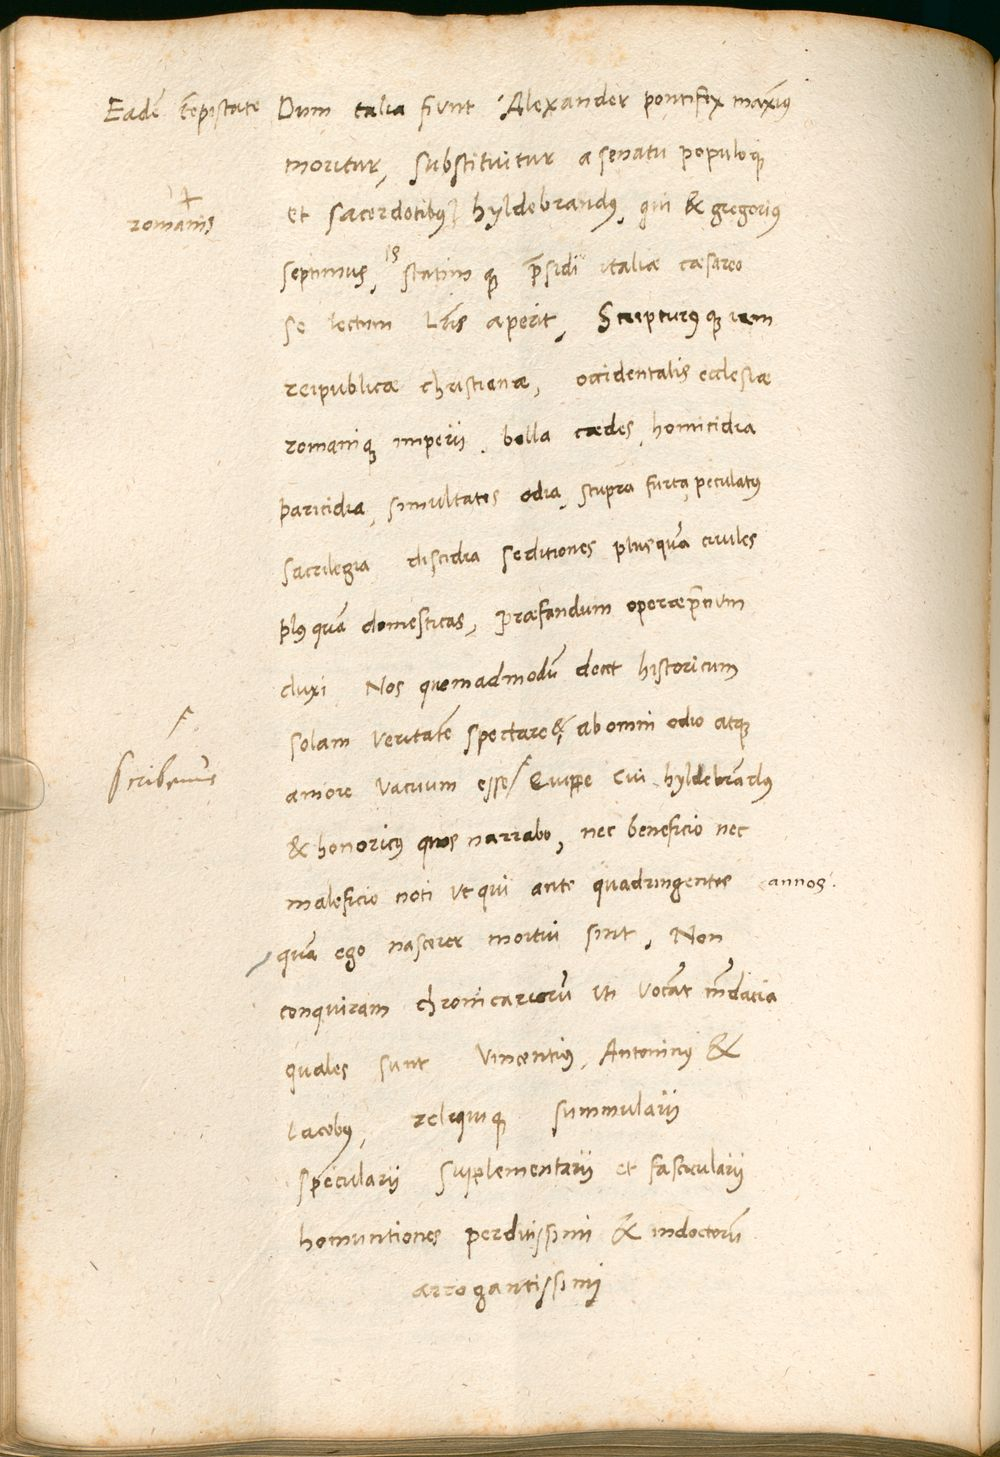 Eadē tēpistate Dum talia fiunt Alexander pontifex maxīꝰ
moritur, substituitur a senatu populoqꝫ
romanis
et sacerdotibꝰ hyldebrandꝰ, qui & gregoriꝰ
septimus, is statim qꝫ p̄sidi italiæ cæsareo
se tectum Lr̄is aperit, Scripturꝰ qꝫ iam
reipublicæ christianæ, occidentalis ecclesiæ
romaniqꝫ imperii, bella cædes, homicidia
paricidia, simultates odia, stupra furta, peculatꝰ
sacrilegia discidia seditiones plusquā ciuiles
plꝰ quā domesticas, præfandum operæp̄cium
duxi Nos quemadmodū decet historicum
solam veritatē spectare &, ab omni odio atqꝫ
scribemus
amore vacuum esse/ Quippe cui hyldebrādꝰ
& honoricꝰ quos narrabo, nec beneficio nec
maleficio noti vt qui ante quadringentos annos.
quā ego nascerer mortui sint, Non
conquiram chronicariorū vti vocāt m̄dacia
quales sunt Vincentiꝰ, Antoninꝰ &
Iacobꝰ, reliquiqꝫ summularii
specularii suplementarii et fascicularii
homuntiones perditissimi & indoctorū
arrogantissimi